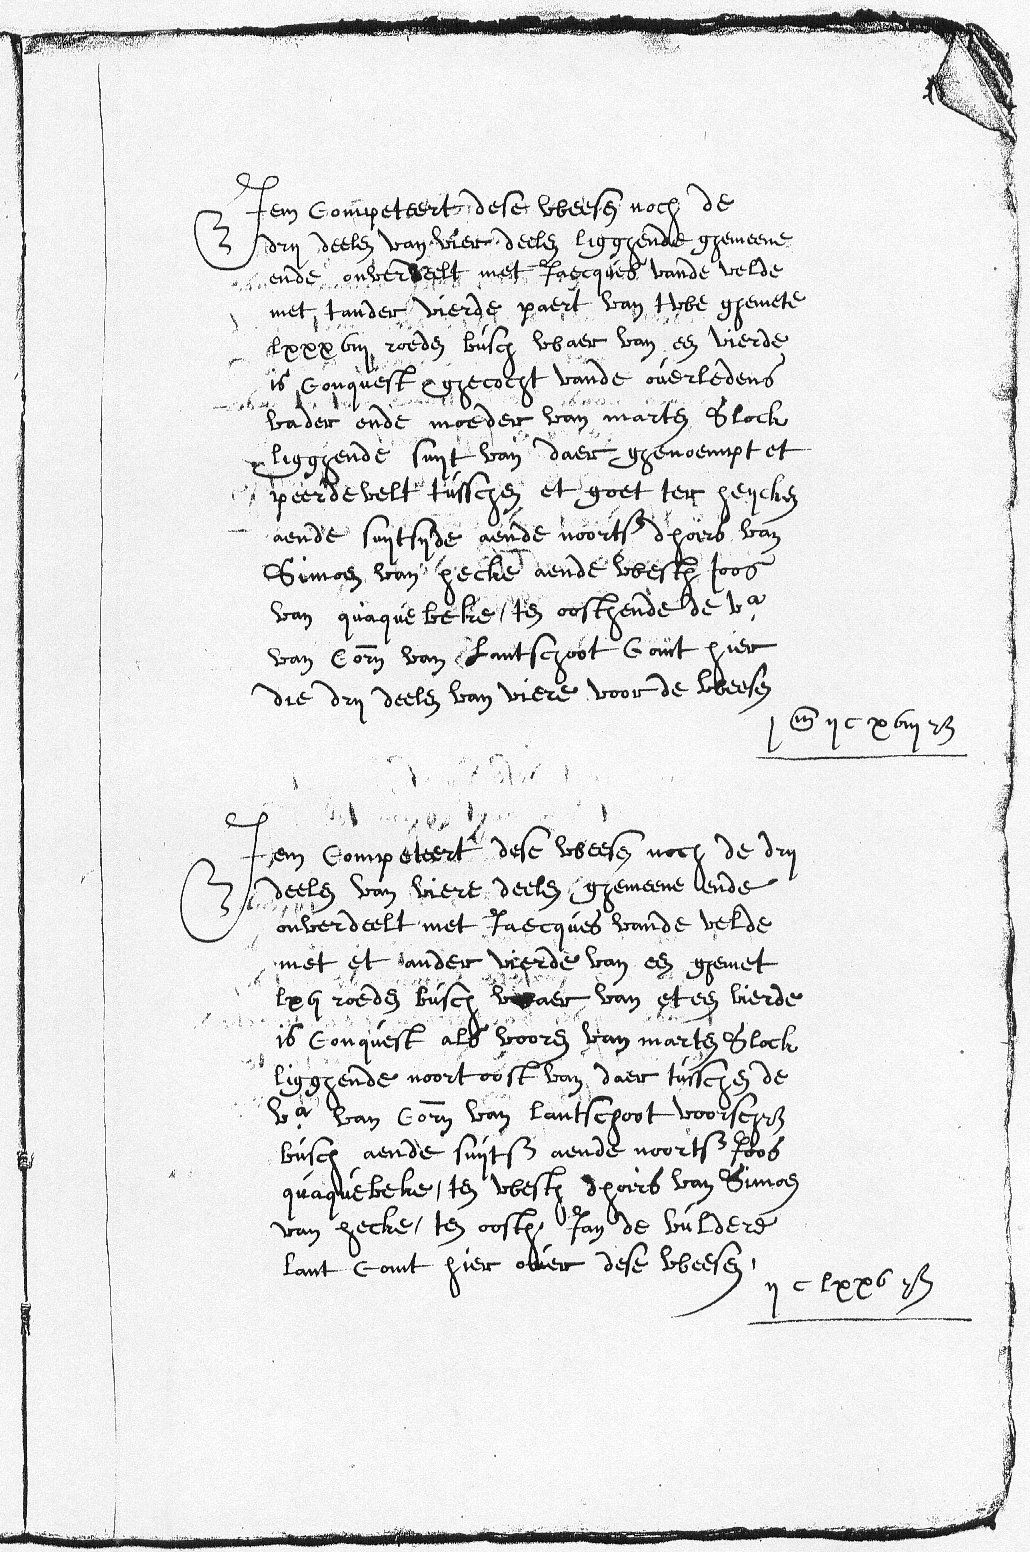 Item Competeert dese weesen noch de
drij deelen van vier deelen liggende ghemeene
ende onverdeelt met Jaecques vande velde
met tander vierde paert van twee ghemete
lxxxviij roeden busch waer van een vierde
is Conquest ghecocht vande overledens
vader ende moeder van marten Slock
ligghende suijt van daer ghenoempt et
peerdevelt tusschen et goet ter heijcken
aende suijtsijde aende noorts dhoirs van
Simoen van hecke aende westh Joos
van quaquebeke / ten oosthende de va
van Corn van Lantschoot Comt hier
die drij deelen van viere voor de weesen
j m ij c xviij R
Item Competeert dese weesen noch de drij
deelen van viere deelen ghemeene ende
onverdeelt met Jaecques vande velde
met et ander vierde van een ghemet
roeden busch waer van et een vierde
is Conquest als vooren van marten Slock
ligghende noortoost van daer tusschen de
va van Corn van lantschoot voorschr
busch aende suijts aende noorts Joos
quaquebeke / ten westh dhoirs van Simoen
van hecke / ten oosth Jan de vuldere
lant Comt hier over dese weesen
ij c lxxv R